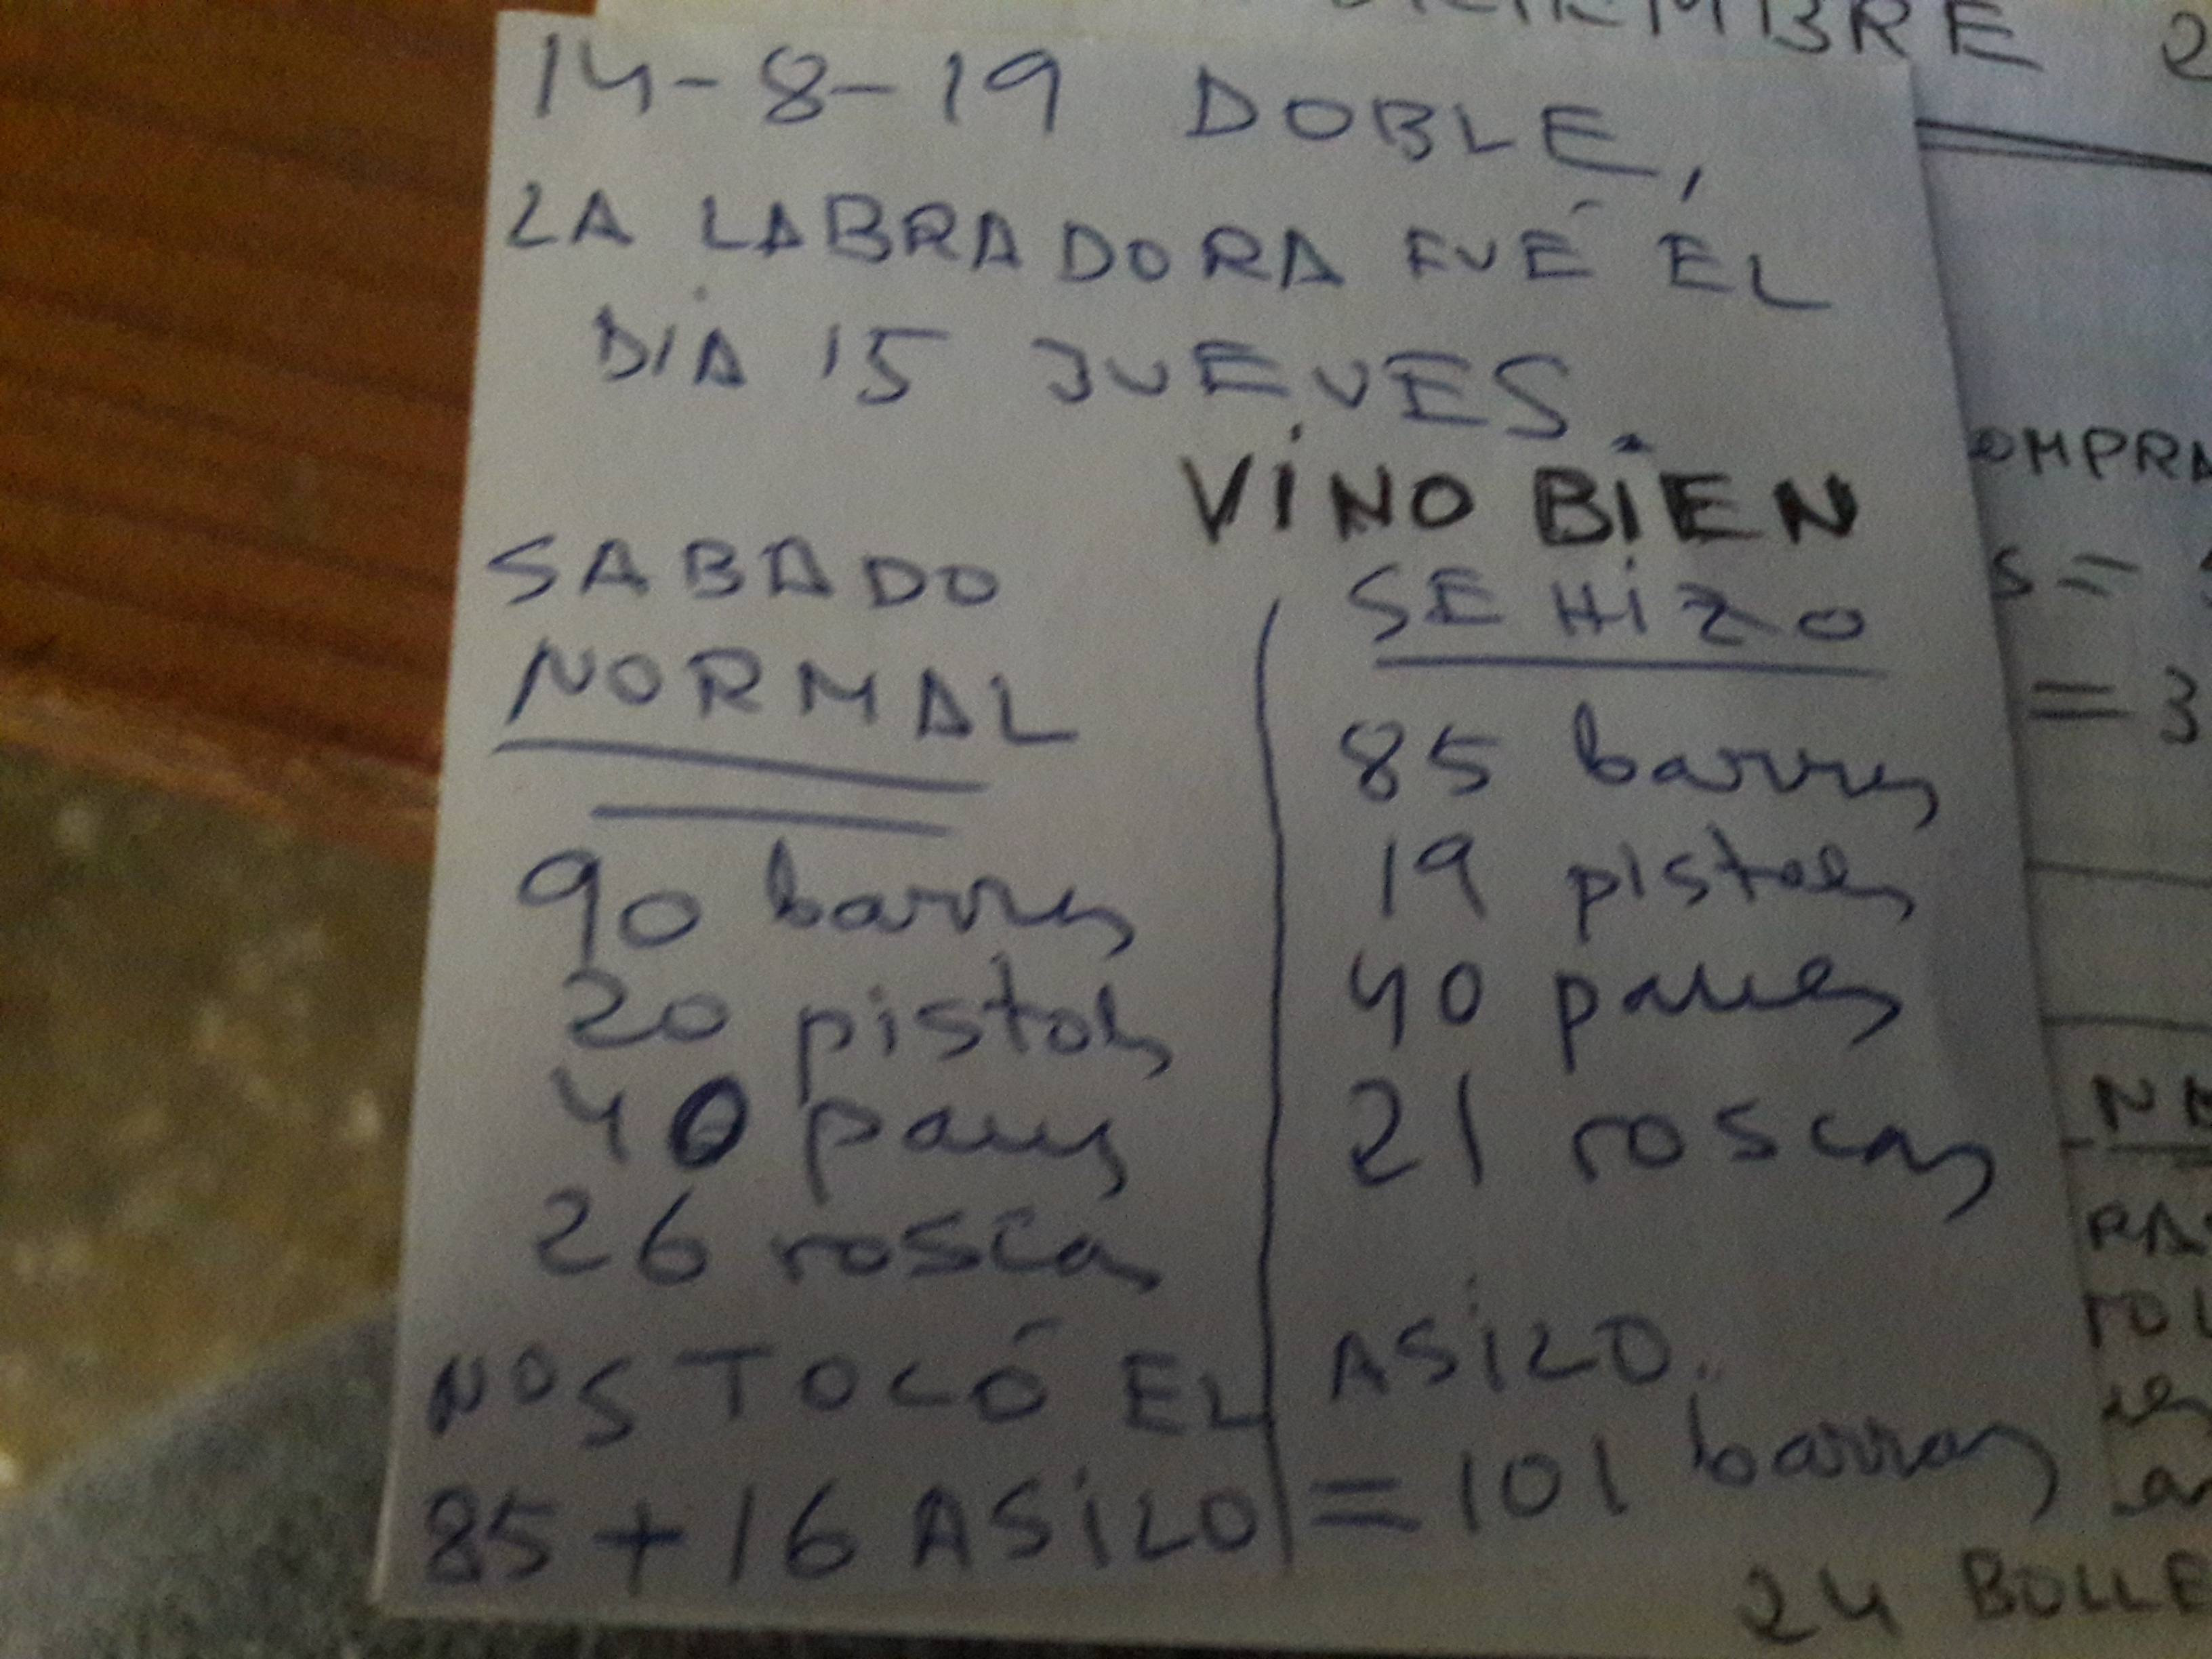 14-8-19 DOBLE,
LA LABRADORA FUÉ EL
DIA 15 JUEVES.
VINO BIEN
SABADO
NORMAL
90 barras
20 pistolas
40 panes
26 roscas
SE HIZO
85 barras
19 pistolas
40 panes
21 roscas
NOS TOCÓ EL ASILO.
85 + 16 ASILO = 101 barras
24 BOLLE
= 3